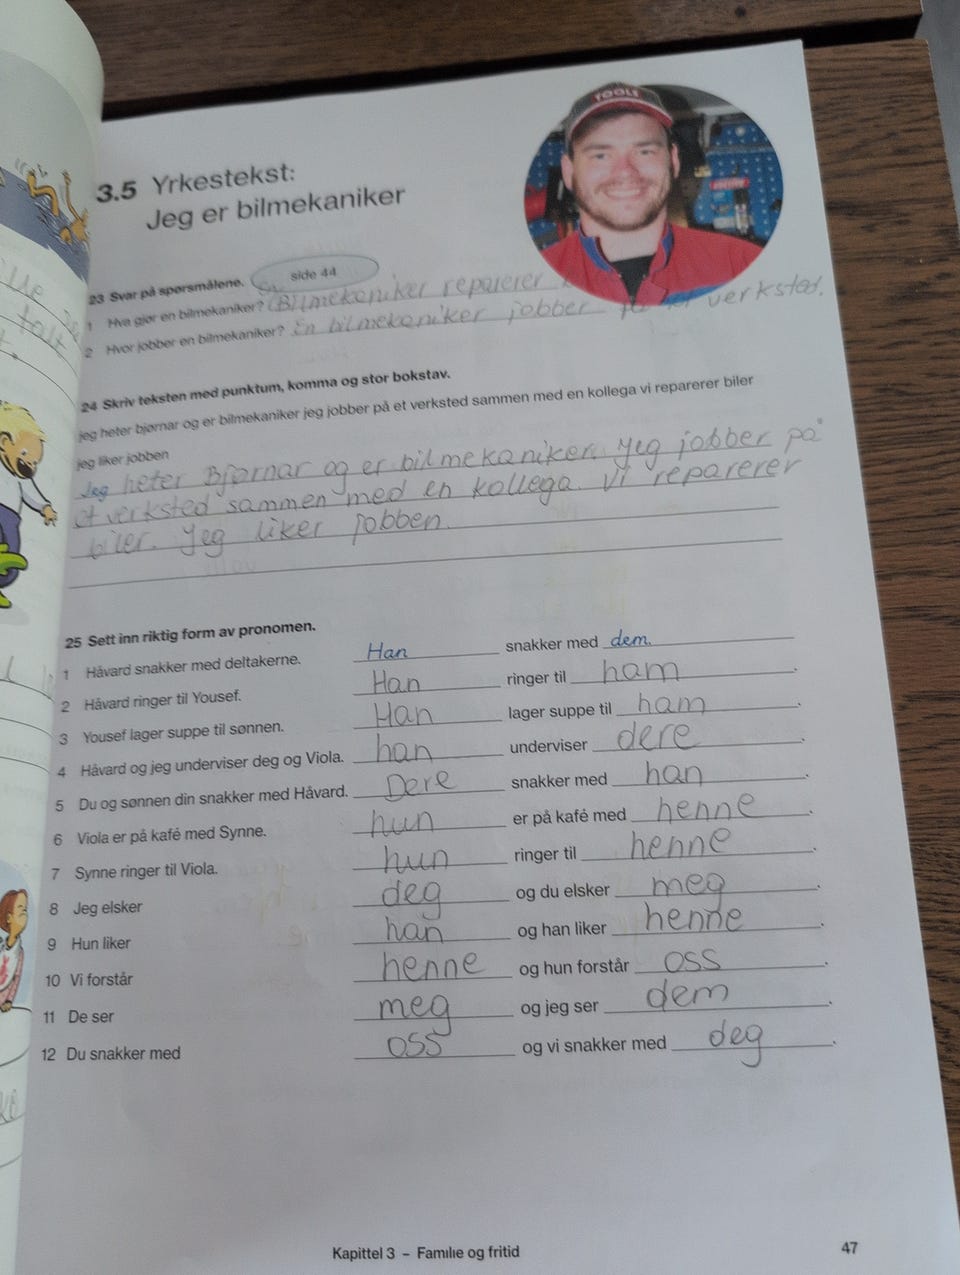 TOOLS
3.5 Yrkestekst:
Jeg er bilmekaniker
side 44
23 Svar på spørsmålene.
1 Hva gjør en bilmekaniker? Bilmekaniker reparerer
2 Hvor jobber en bilmekaniker? En bilmekaniker jobber verksted.
24 Skriv teksten med punktum, komma og stor bokstav.
jeg heter bjørnar og er bilmekaniker jeg jobber på et verksted sammen med en kollega vi reparerer biler
jeg liker jobben
Jeg heter Bjørnar og er bilmekaniker. Jeg jobber på
et verksted sammen med en kollega. Vi reparerer
biler. Jeg liker jobben.
25 Sett inn riktig form av pronomen.
1 Håvard snakker med deltakerne. Han snakker med dem.
2 Håvard ringer til Yousef. Han ringer til ham.
3 Yousef lager suppe til sønnen. Han lager suppe til ham.
4 Håvard og jeg underviser deg og Viola. han underviser dere.
5 Du og sønnen din snakker med Håvard. Dere snakker med han.
6 Viola er på kafé med Synne. hun er på kafé med henne.
7 Synne ringer til Viola. hun ringer til henne.
8 Jeg elsker deg og du elsker meg.
9 Hun liker han og han liker henne.
10 Vi forstår henne og hun forstår oss.
11 De ser meg og jeg ser dem.
12 Du snakker med oss og vi snakker med deg.
Kapittel 3 – Familie og fritid
47